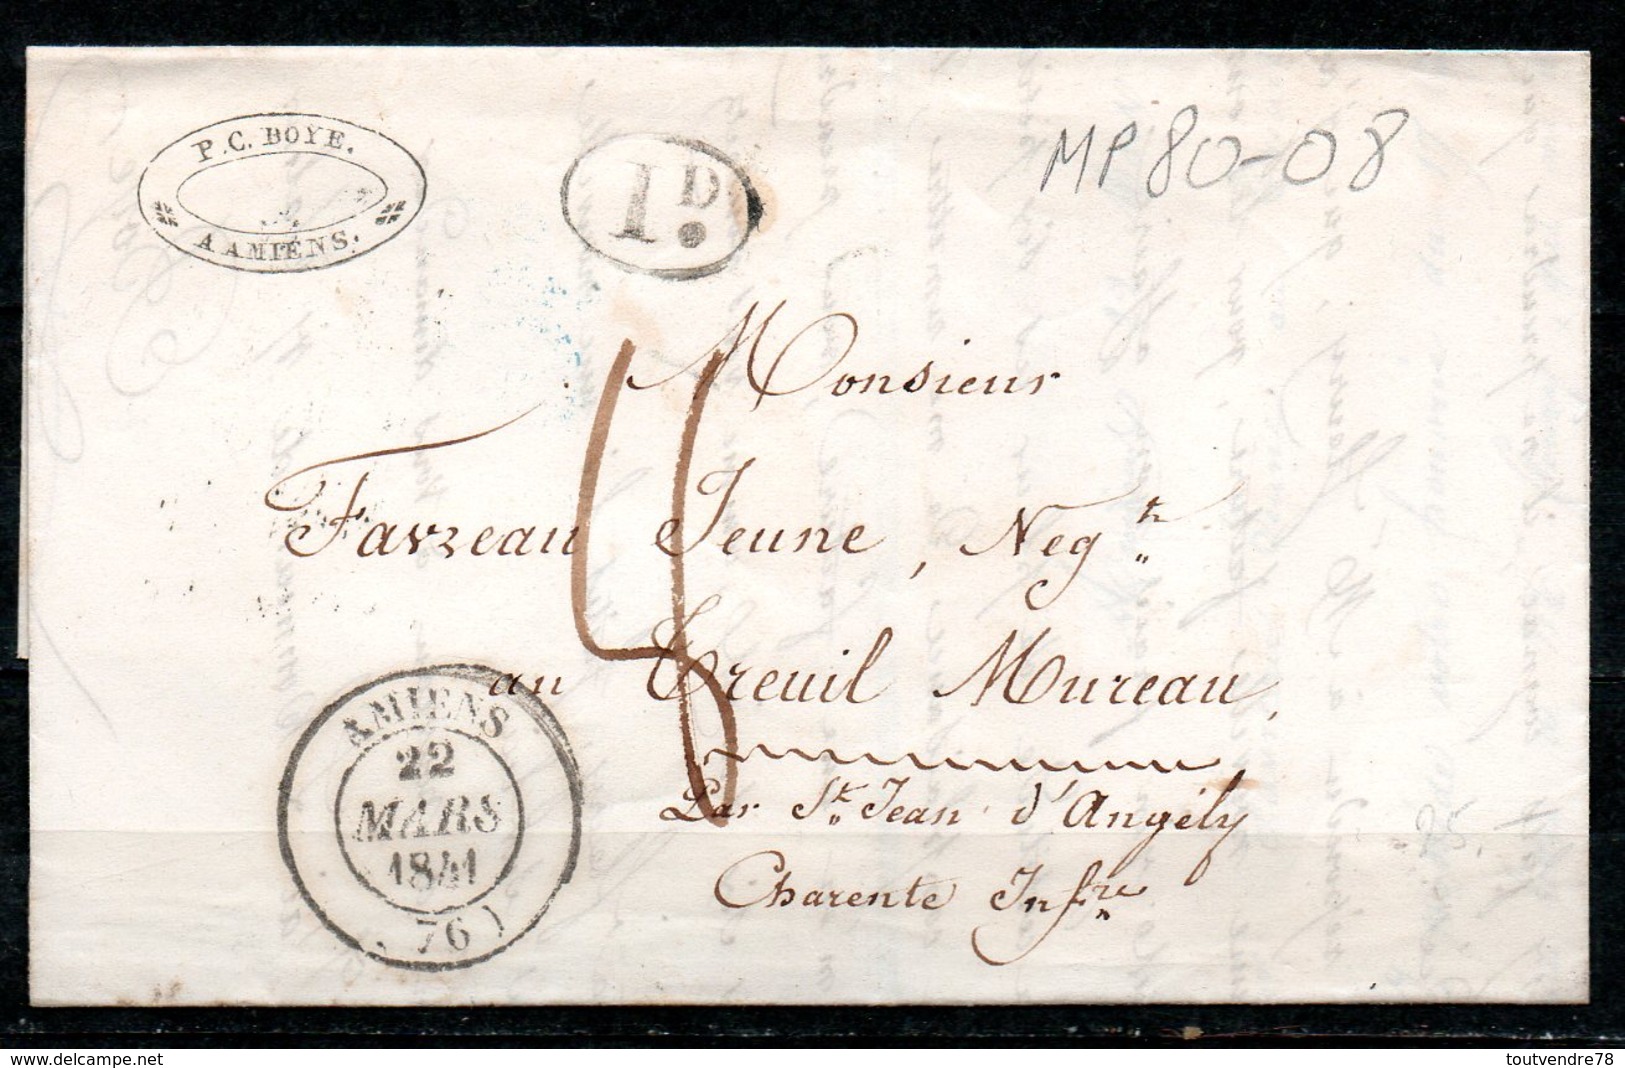 P.C. BOYE.
A AMIENS.
1D.
MP80-08
Monsieur
Favreau Jeune, Negt
au Treuil Mureau,
Par St Jean d'Angély
Charente Infre
4
AMIENS
22
MARS
1841
(76)
25
www.delcampe.net
toutvendre78